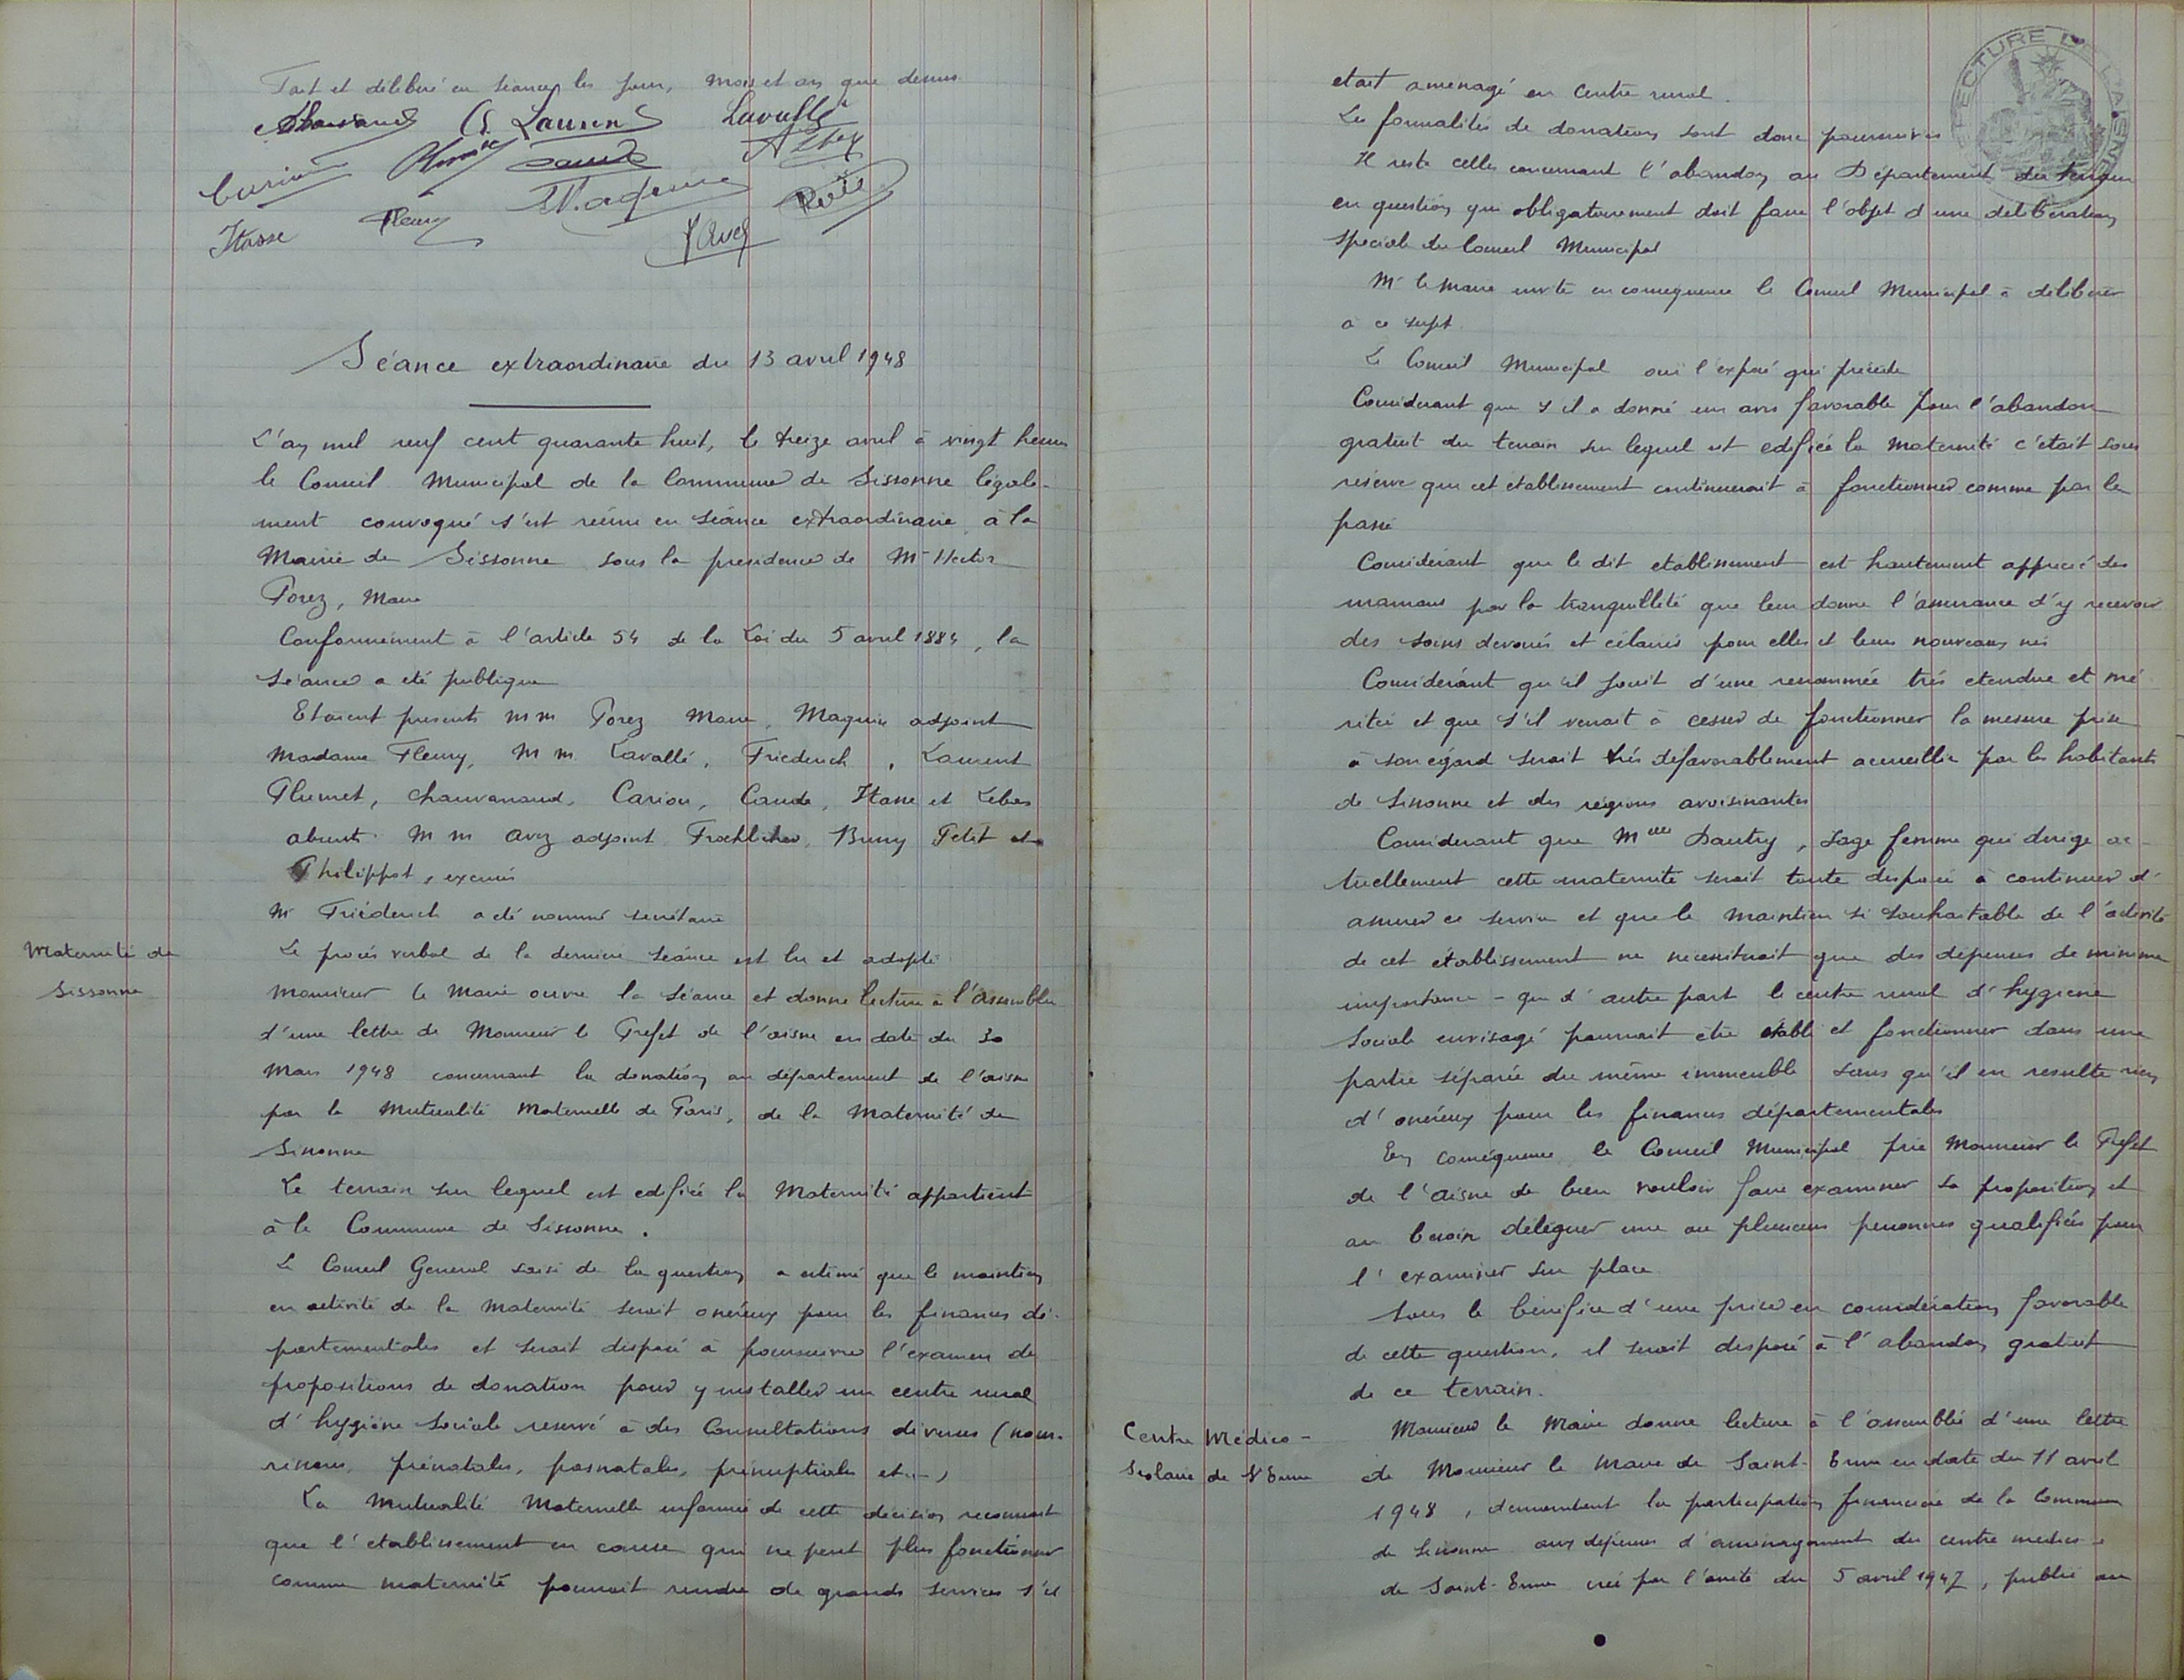 Fait et délibéré en séance, les jour, mois et an que dessus
Chauvanaud Ch. Laurent Lavallé
Cariou
Itasse Fleury
Séance extraordinaire du 13 avril 1948
L'an mil neuf cent quarante huit, le treize avril à vingt heures
le Conseil Municipal de la Commune de Sissonne légale-
ment convoqué s'est réuni en séance extraordinaire à la
Mairie de Sissonne sous la présidence de Mr Hector
Porez, Maire
Conformément à l'article 54 de la Loi du 5 avril 1884, la
séance a été publique
Etaient présents MM Porez Maire, Magnin adjoint
Madame Fleury, MM. Lavallé, Friederich, Laurent
Plumet, Chauvanaud, Cariou, Caude, Itasse et Lebas
absents. MM Avez adjoint Froehlicher, Buny Petit et
Philippot, excusés
Mr Friéderich a été nommé secrétaire
Maternité de
Sissonne
Le procès verbal de la dernière séance est lu et adopté
Monsieur le Maire ouvre la séance et donne lecture à l'assemblée
d'une lettre de Monsieur le Préfet de l'aisne en date du 30
Mars 1948 concernant la donation au département de l'aisne
par la Mutualité Maternelle de Paris, de la Maternité de
Sissonne
Le terrain sur lequel est edifiée la Maternité appartient
à la Commune de Sissonne.
Le Conseil General saisi de la question a estimé que le maintien
en activité de la Maternité serait onéreux pour les finances dé-
partementales et serait disposé à poursuivre l'examen de
propositions de donation pour y installer un centre rural
d'hygiène sociale reservé à des Consultations diverses (nour-
rissons, prénatales, posnatales, prénuptiales etc...)
La Mutualité Maternelle informée de cette décision reconnait
que l'etablissement en cause qui ne peut plus fonctionner
comme maternité pourrait rendre de grands services s'il
etait aménagé en Centre rural.
Les formalités de donation sont donc poursuivies
Il reste celles concernant l'abandon au Département du terrain
en question qui obligatoirement doit faire l'objet d'une délibération
speciale du Conseil Municipal
Mr le Maire invite en consequence le Conseil Municipal à délibérer
à ce sujet.
Le Conseil Municipal oui l'exposé qui précède
Considerant que s'il a donné un avis favorable pour l'abandon
gratuit du terrain sur lequel est edifiée la Maternité c'etait sous
réserve que cet etablissement continuerait à fonctionner comme par le
passé
Considérant que le dit etablissement est hautement apprecié des
mamans par la tranquillité que leur donne l'assurance d'y recevoir
des soins devoués et éclairés pour elles et leurs nouveaux nés
Considérant qu'il jouit d'une renommée très etendue et mé-
ritée et que s'il venait à cesser de fonctionner la mesure prise
à son égard serait très défavorablement accueillie par les habitants
de Sissonne et des régions avoisinantes
Considerant que Melle Dautry, sage femme qui dirige ac-
tuellement cette maternité serait toute disposée à continuer d'
assurer ce service et que le maintien si souhaitable de l'activité
de cet établissement ne necessiterait que des dépenses de minime
importance - que d'autre part le centre rural d'hygiene
Sociale envisagé pourrait être établi et fonctionner dans une
partie séparée du même immeuble sans qu'il en resulte rien
d'onéreux pour les finances départementales
En conséquence le Conseil Municipal prie Monsieur le Prefet
de l'aisne de bien vouloir faire examiner sa proposition et
au besoin déléguer une ou plusieurs personnes qualifiées pour
l'examiner sur place.
Sous le bénéfice d'une prise en considération favorable
de cette question, il serait disposé à l'abandon gratuit
de ce terrain.
Centre Médico-
Scolaire de St Erme
Monsieur le Maire donne lecture à l'assemblée d'une lettre
de Monsieur le Maire de Saint-Erme en date du 11 avril
1948, demandant la participation financière de la Commune
de Sissonne aux dépenses d'aménagement du centre medico
de Saint-Erme créé par l'arrêté du 5 avril 1947, publié au
PREFECTURE DE L'AISNE